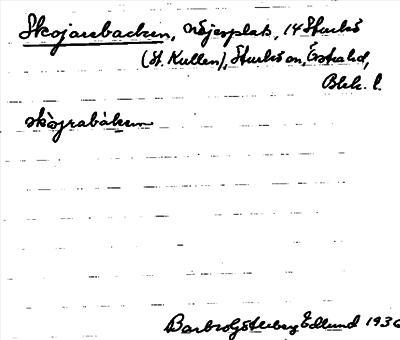 Skojarebacken, nöjesplats, 14 Sturkö
(St. Kullen), Sturkö sn, Östra hd,
Blek. l.
skòjrabàken
Barbro Götberg Edlund 1936